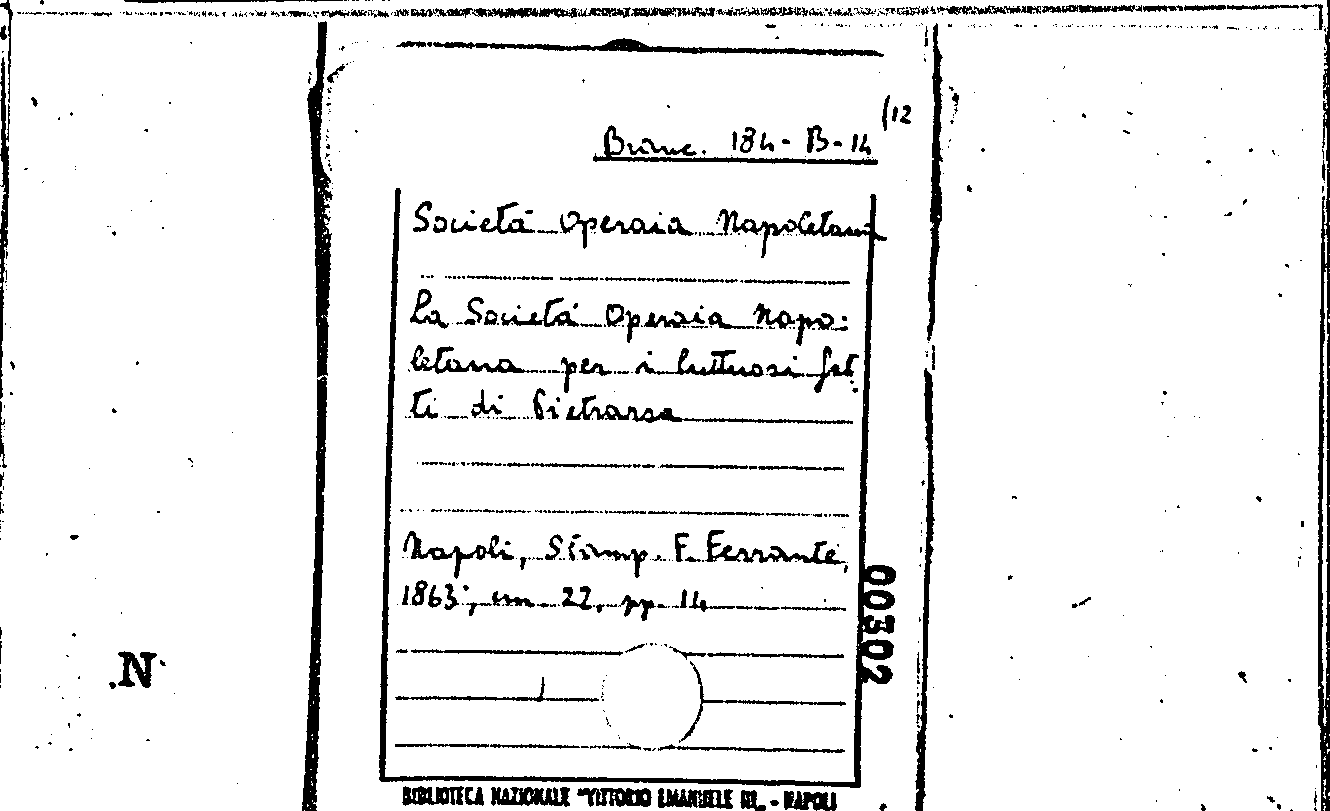 (12
Branc. 184 - B - 14
Società Operaia Napoletana
La Società Operaia Napo:
letana per i luttuosi fat
ti di Pietrarsa
Napoli, Stamp. F. Ferrante,
1863, cm. 22, pp. 14
00302
.N
BIBLIOTECA NAZIONALE "VITTORIO EMANUELE III„ - NAPOLI